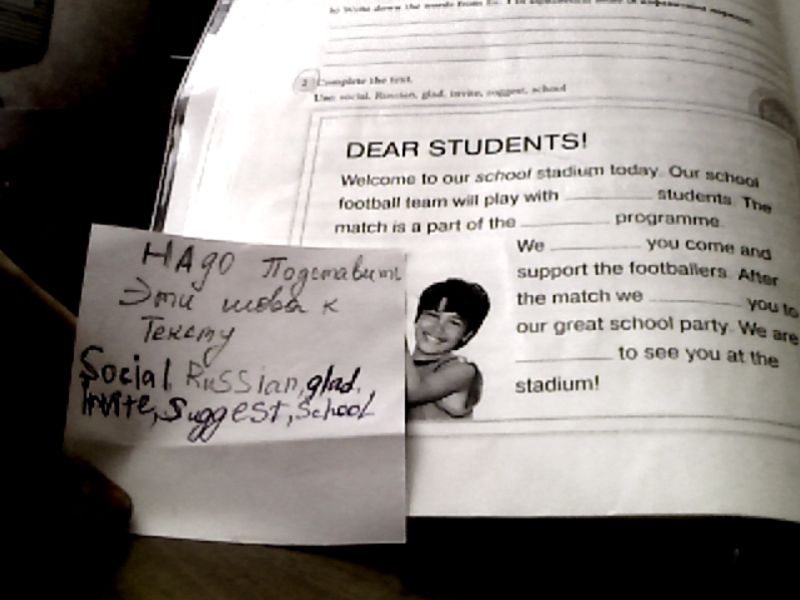 b) Write down the words from Ex. 1 in
2 Complete the text.
Use: social, Russian, glad, invite, suggest, school
DEAR STUDENTS!
Welcome to our school stadium today. Our school
football team will play with ________ students. The
match is a part of the ________ programme.
We ________ you come and
support the footballers. After
the match we ________ you to
our great school party. We are
________ to see you at the
stadium!
НАДО Подставить
Эти слова к
Тексту
Social, Russian, glad,
Invite, Suggest, School